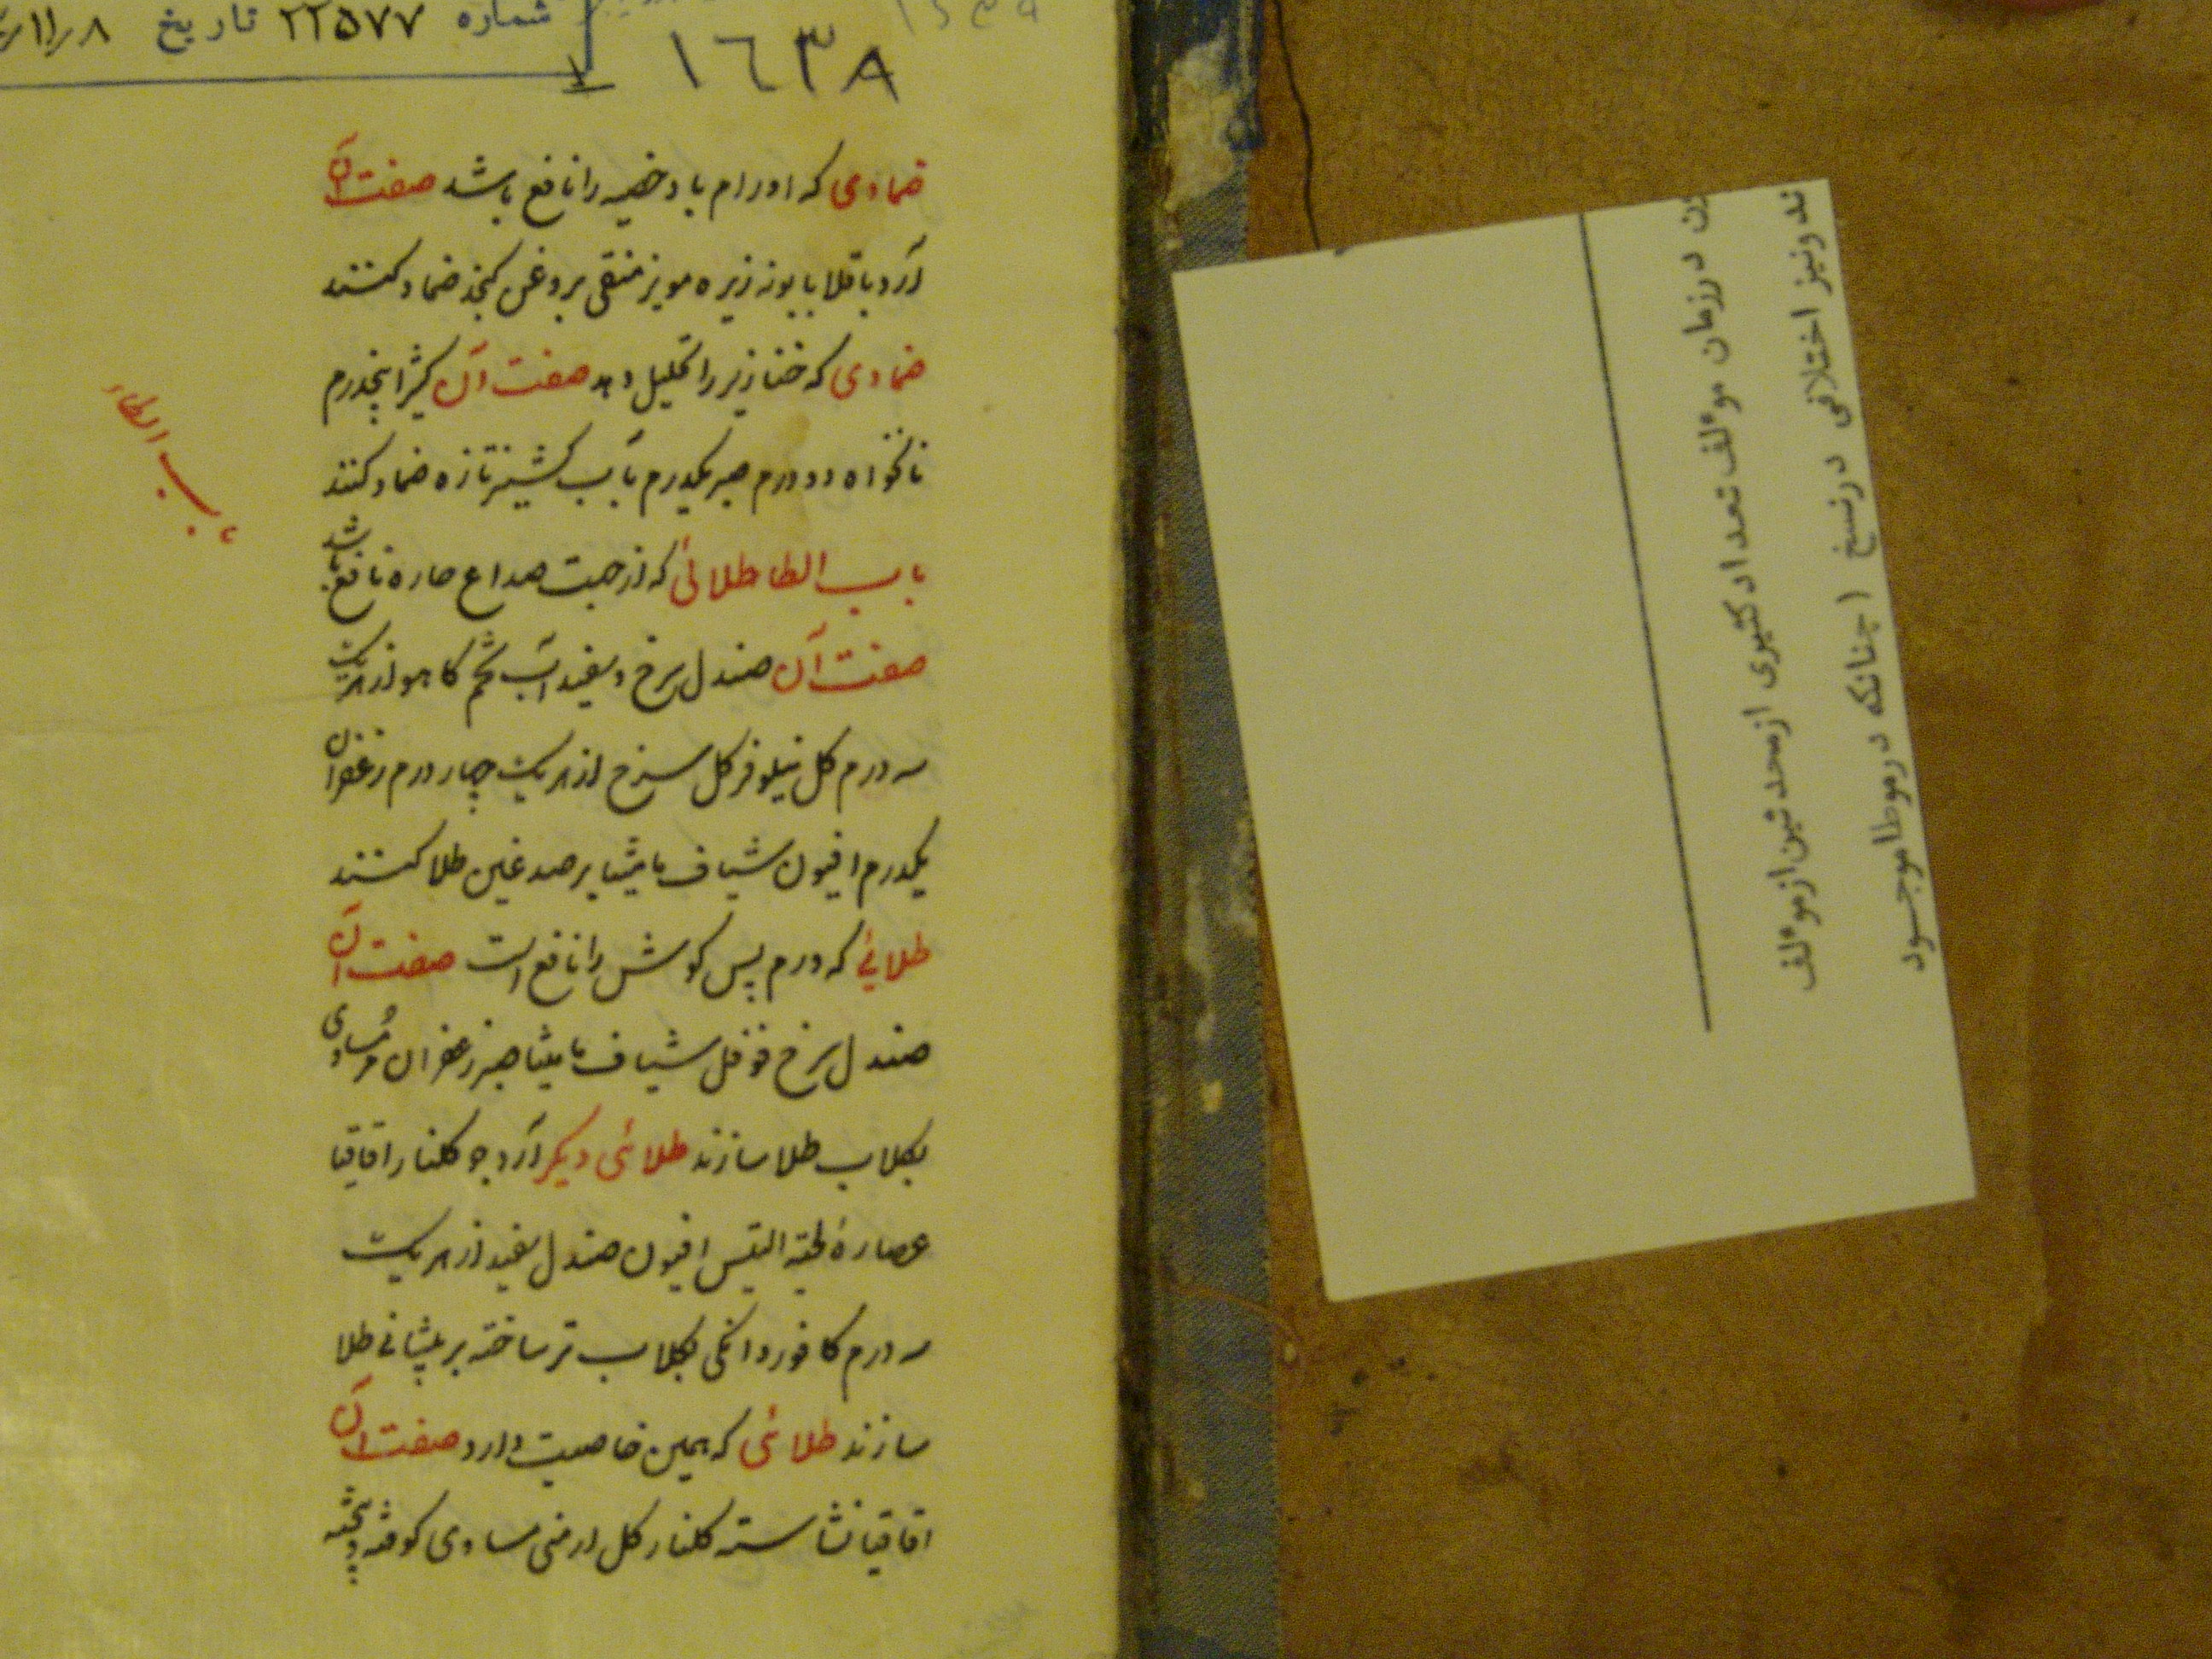 شماره ۲۲۵۷۷ تاریخ
۱٦۳۸
ضمادی که اورام باد خصیه را نافع باشد صفت آن
آرد باقلا بابونه زیره مویز منقی بروغن کنجد ضماد کنند
ضمادی که خنازیر را تحلیل دهد صفت آن کثیرا پنجدرم
نانخواه دو درم صبر یکدرم بآب کشنیز تازه ضماد کنند
باب الطاء
باب الطا طلائی که از جهت صداع حاره نافع باشد
صفت آن صندل سرخ و سفیداب تخم کاهو از هریک
سه درم کل نیلوفر کل سرخ از هریک چهار درم زعفران
یکدرم افیون شیاف مامیثا بر صدغین طلا کنند
طلائی که ورم پس کوش را نافع است صفت آن
صندل سرخ فوفل شیاف مامیثا صبر زعفران مر مساوی
بکلاب طلا سازند طلائی دیکر آرد جو کلنار اقاقیا
عصارهٔ لحیة التیس افیون صندل سفید از هریک
سه درم کافور دانکی بکلاب تر ساخته بر پیشانی طلا
سازند طلائی که همین خاصیت دارد صفت آن
اقاقیا نشاسته کلنار کل ارمنی مساوی کوفته و پخته
ند ونیز اختلافی درنسخ (چنانکه درموطا موجود
درزمان موٴلف تعداد کثیری ازمحدثین ازموٴلف